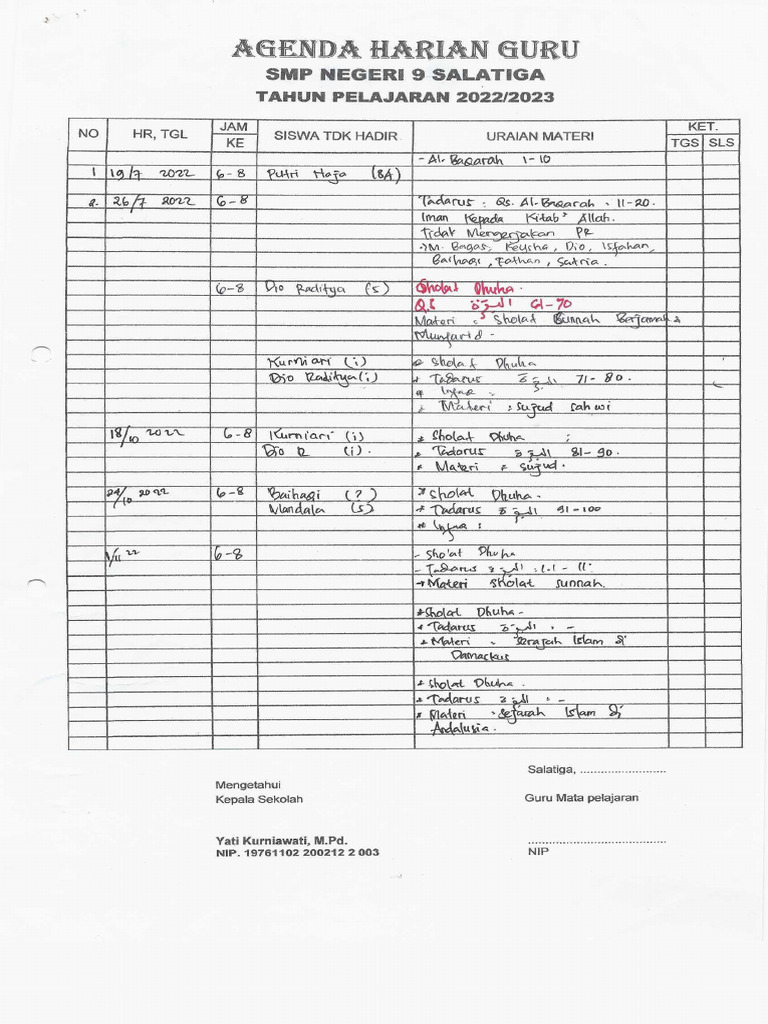 AGENDA HARIAN GURU
SMP NEGERI 9 SALATIGA
TAHUN PELAJARAN 2022/2023
NO HR, TGL JAM KE SISWA TDK HADIR URAIAN MATERI KET. TGS SLS
- Al. Baqarah 1-10
1 19/7 2022 6-8 Putri Haja (8A)
2. 26/7 2022 6-8 Tadarus : Qs. Al-Baqarah . 11-20.
Iman Kepada Kitab² Allah.
Tidak Mengerjakan PR
→M. Bagas, Keysha, Dio, Isfahan,
Baihaqi, Fathan, Satria.
6-8 Dio Raditya (s) Sholat Dhuha.
Q.S البقرة 61-70
Materi : Sholat Sunnah Berjamaah &
Munfarid -
Kurniari (i) * Sholat Dhuha
Dio Raditya (i) * Tadarus البقرة 71-80.
* Infaq :
* Materi : sujud sahwi
18/10 2022 6-8 Kurniari (i) * Sholat Dhuha ;
Dio R (i). * Tadarus البقرة 81-90.
* Materi = sujud.
24/10 2022 6-8 Baihaqi (?) * Sholat Dhuha.
Mandala (s) * Tadarus البقرة 91-100
* Infaq :
1/11 22 6-8 - Sholat Dhuha
- Tadarus البقرة : 101 - 11
→ Materi sholat sunnah.
* Sholat Dhuha-
* Tadarus البقرة . -
* Materi . Sejarah Islam di
Damaskus
* Sholat Dhuha.
* Tadarus البقرة . -
* Materi . sejarah Islam di
Andalusia.
Salatiga, ..........................
Mengetahui
Kepala Sekolah Guru Mata pelajaran
Yati Kurniawati, M.Pd. ..........................
NIP. 19761102 200212 2 003 NIP